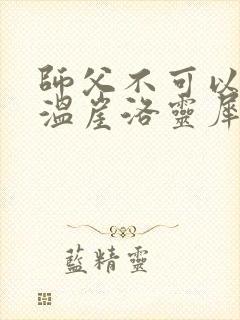 師父不可以
溫崖洛靈犀
藍精靈